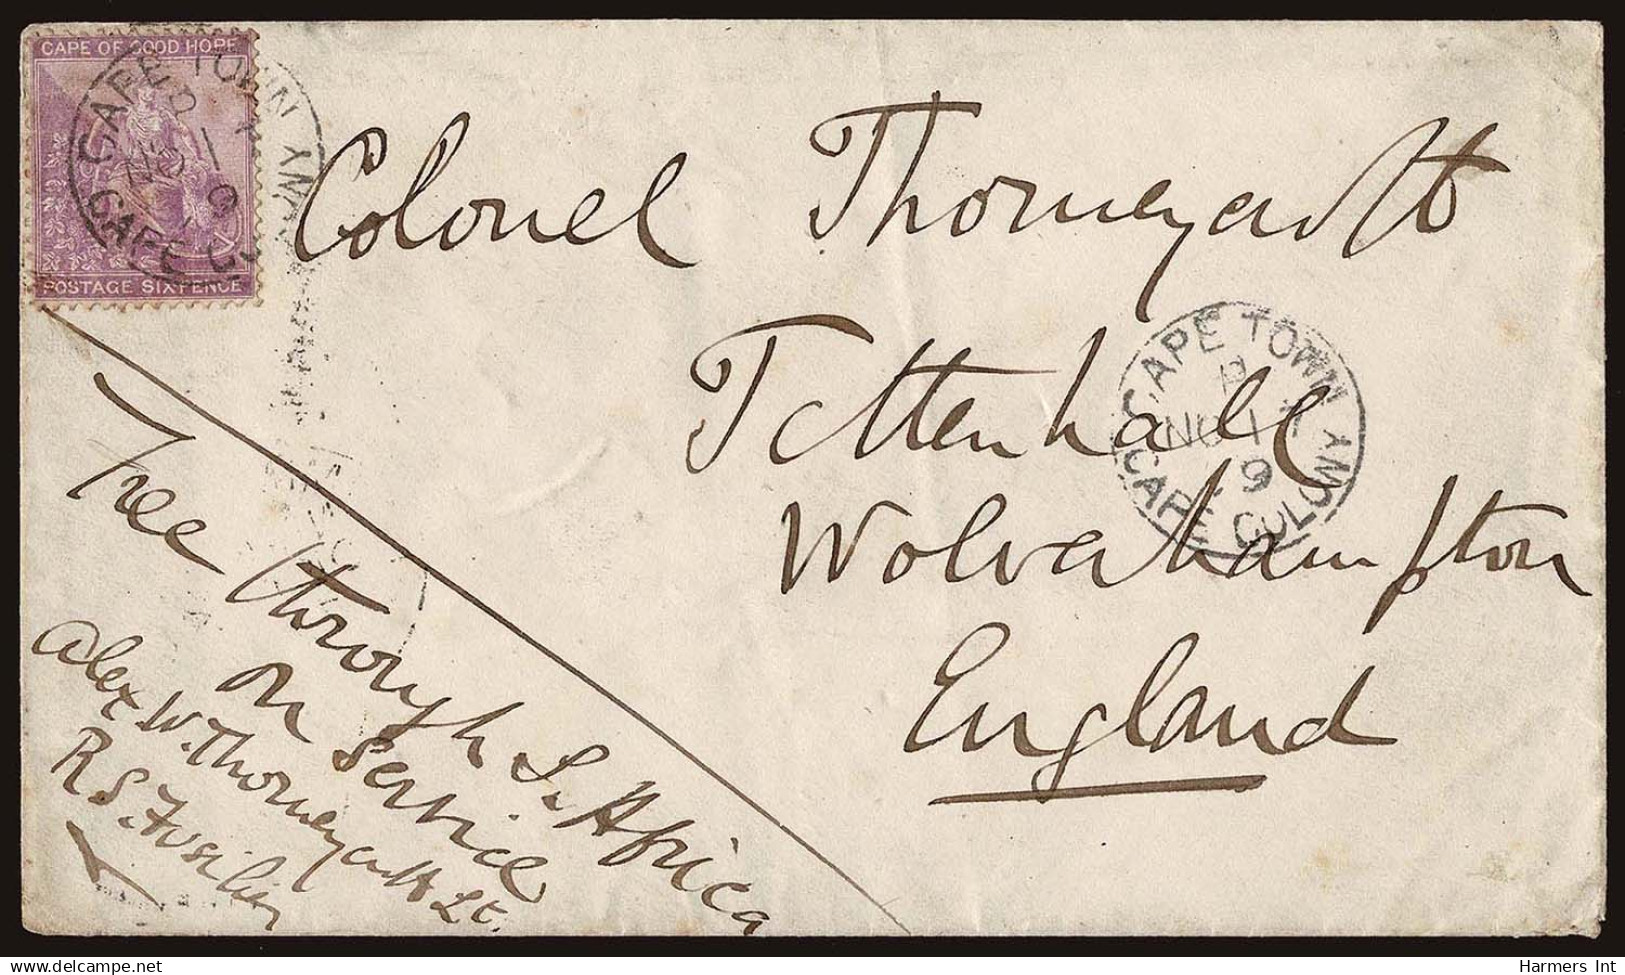 CAPE OF GOOD HOPE
POSTAGE SIXPENCE
CAPE TOWN
CAPE COLONY
Colonel Thorneycroft
Tettenhall
Wolverhampton
England
CAPE TOWN
P
NO 1
9
CAPE COLONY
Free through S. Africa
On Service
Alex W. Thorneycroft Lt.
R S. Fusiliers
Harmers Int